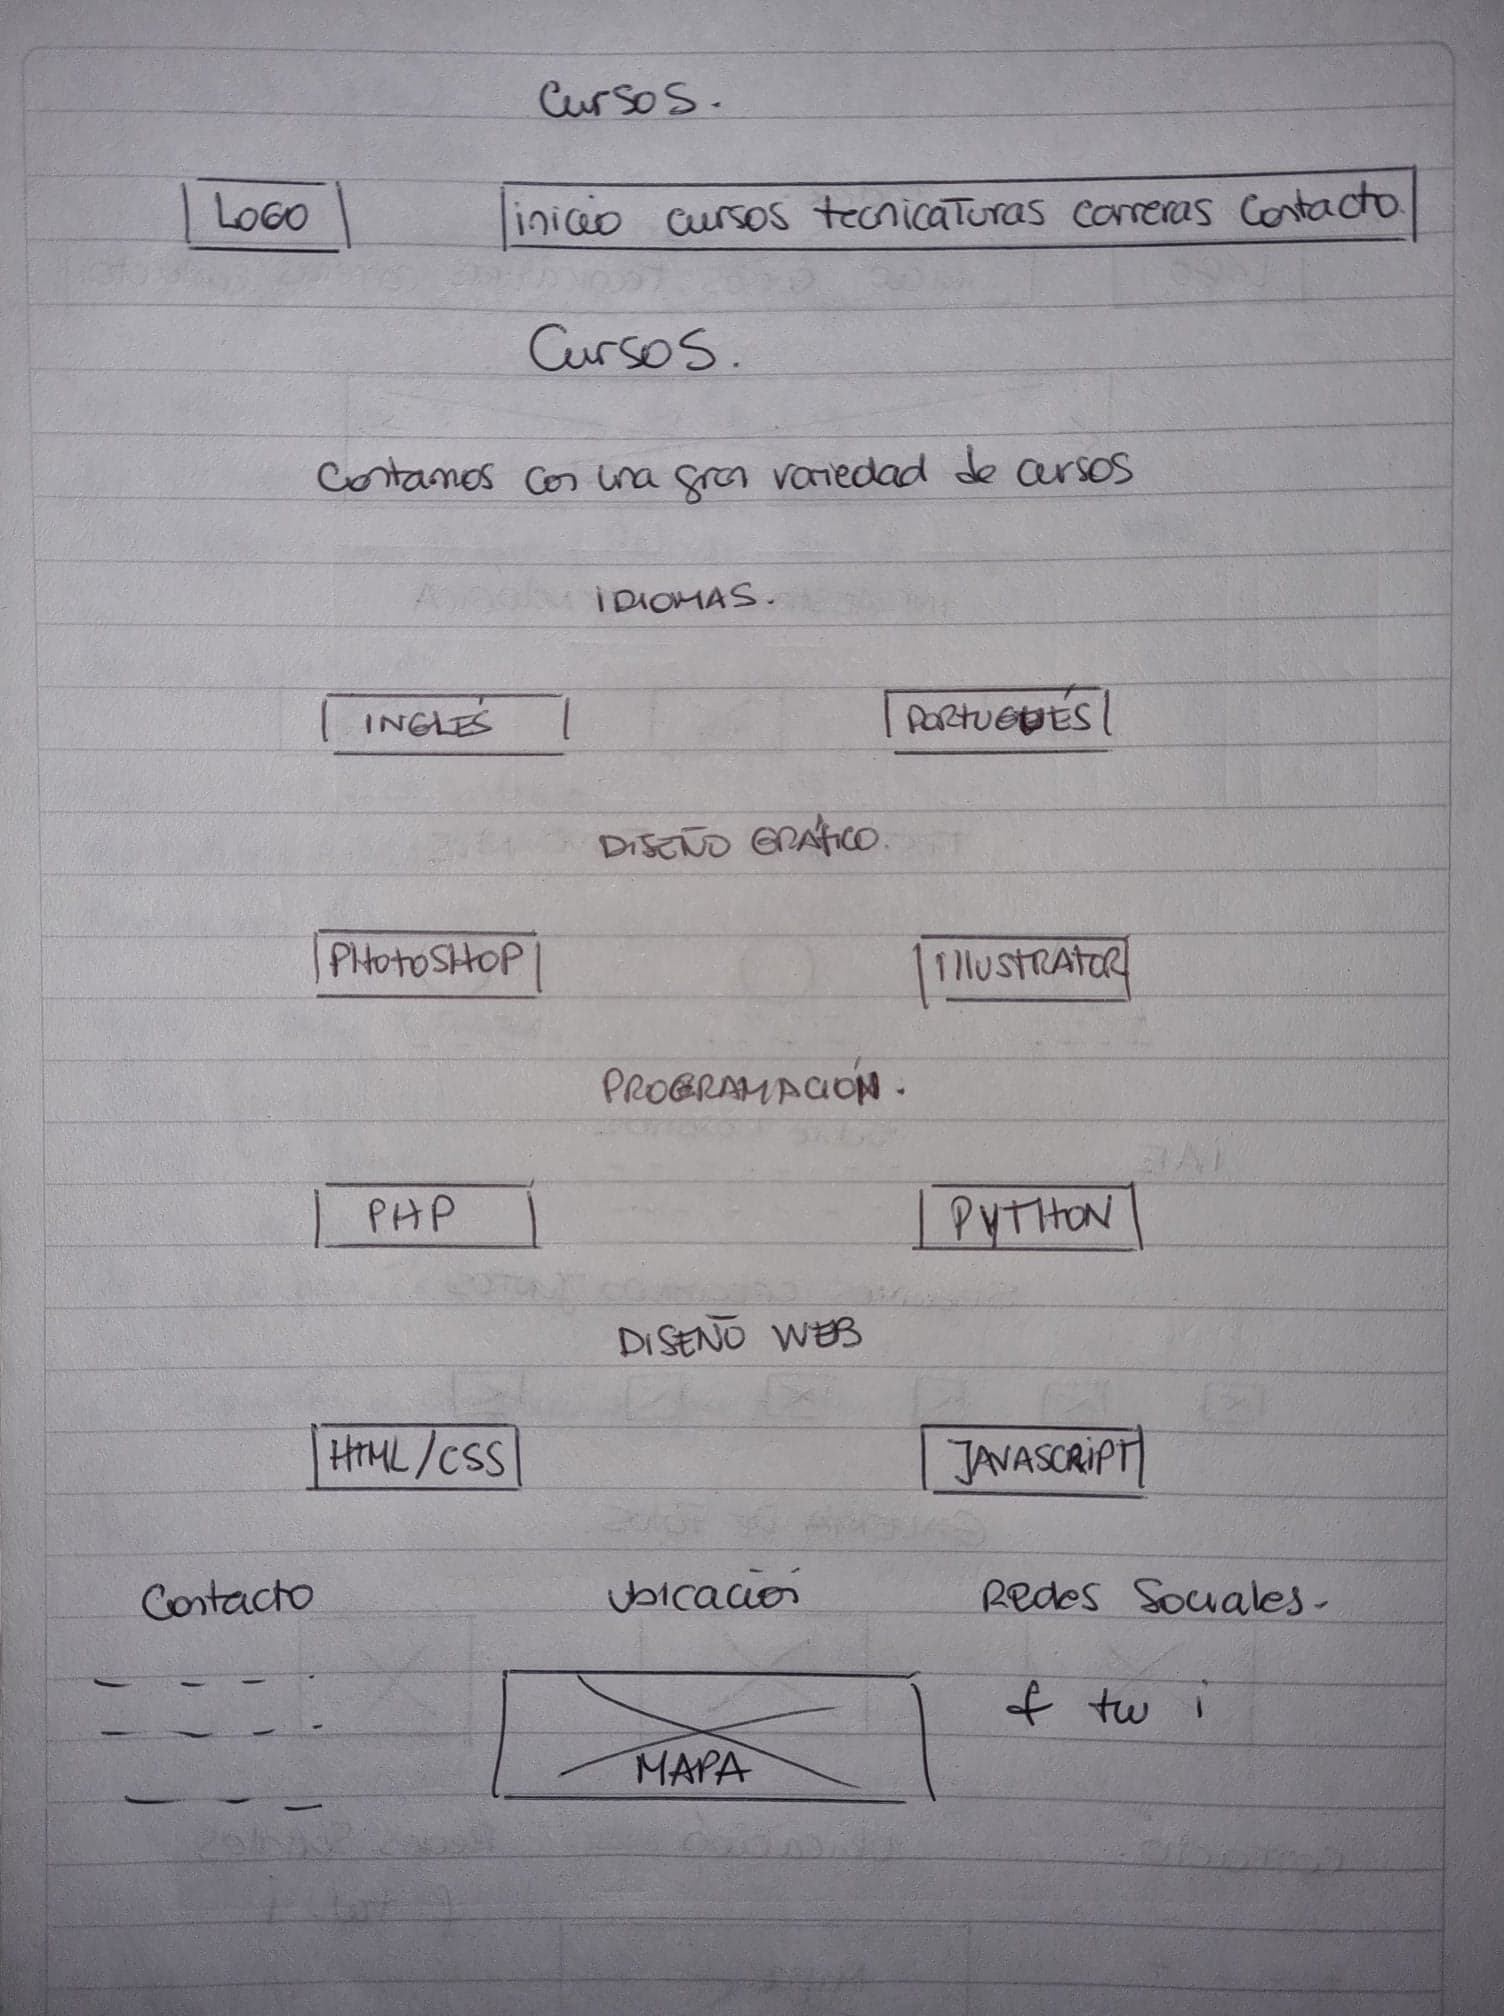 Cursos.
LOGO inicio cursos tecnicaturas carreras Contacto
Cursos.
Contamos con una gran variedad de cursos
IDIOMAS.
INGLÉS PORTUGUÉS
DISEÑO GRÁFICO.
PHOTOSHOP ILLUSTRATOR
PROGRAMACIÓN.
PHP PYTHON
DISEÑO WEB
HTML/CSS JAVASCRIPT
Contacto Ubicación Redes Sociales.
f tw i
MAPA